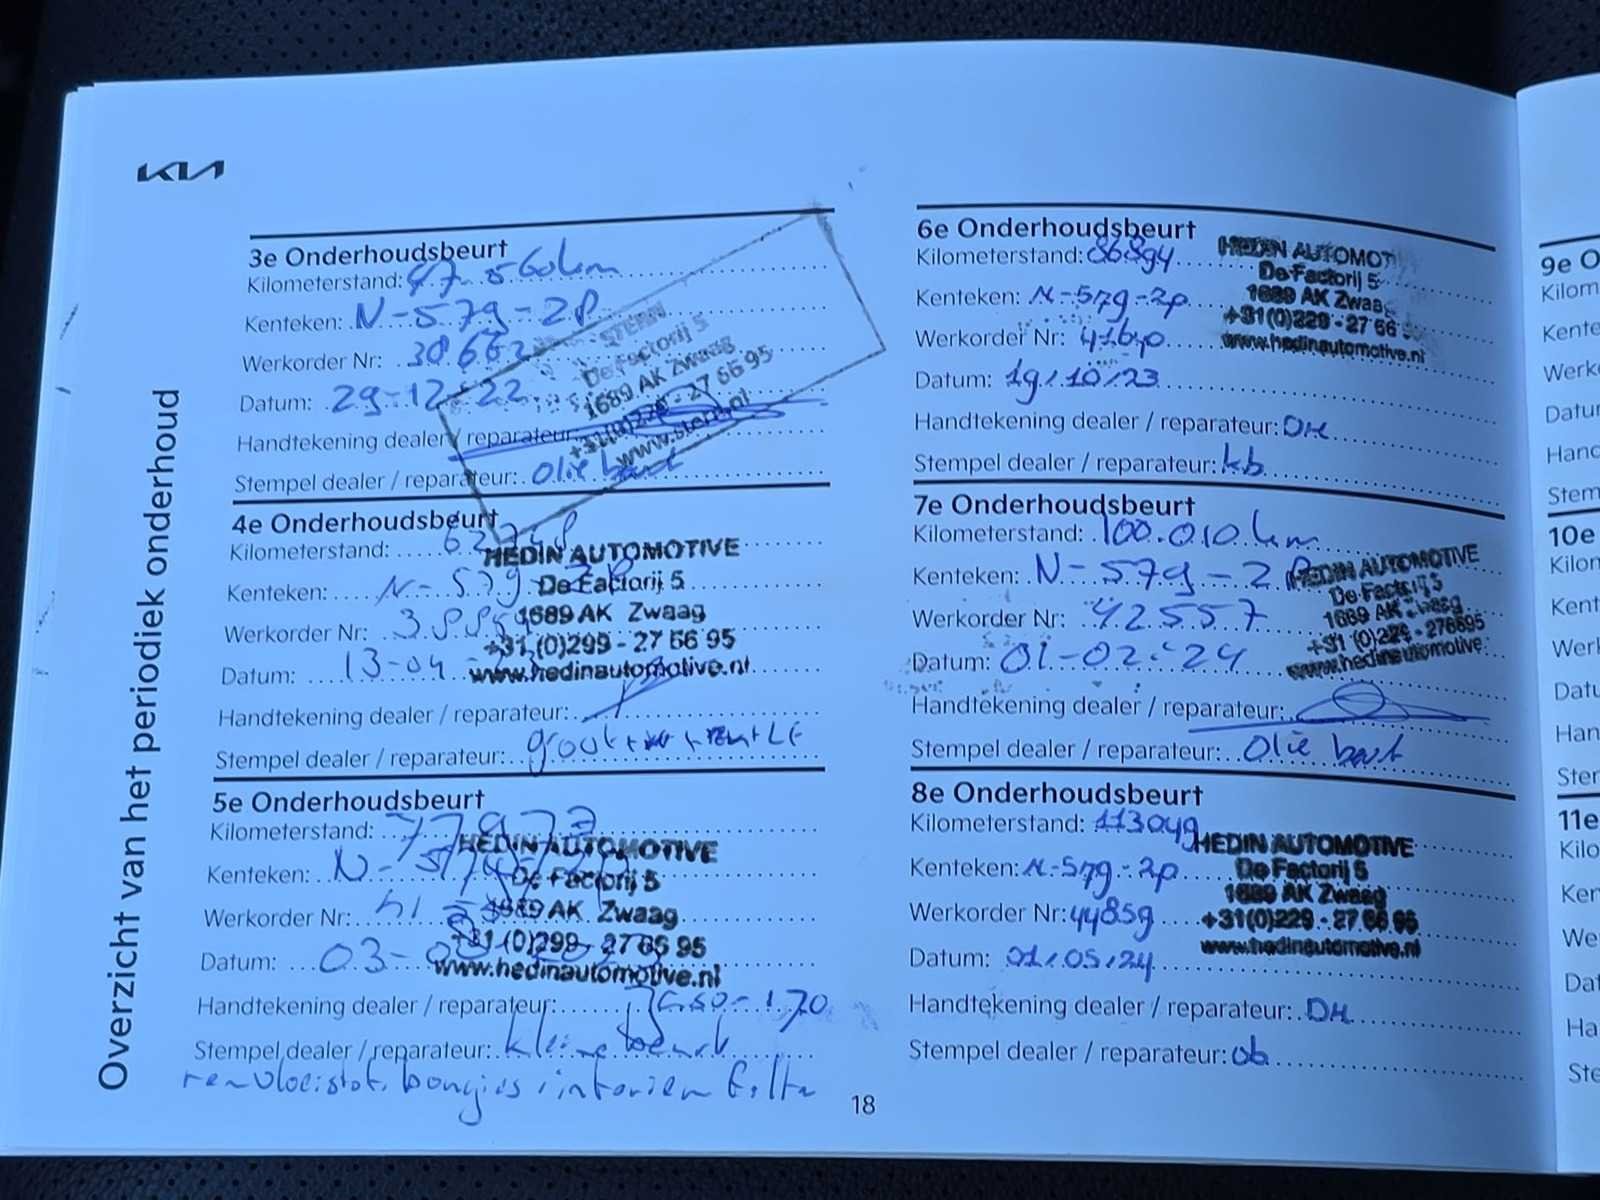 KIA
Overzicht van het periodiek onderhoud
3e Onderhoudsbeurt
Kilometerstand: 47.560km
Kenteken: N-579-2P
Werkorder Nr: 30662
Datum: 29-12-22
Handtekening dealer / reparateur:
Stempel dealer / reparateur: Olie beurt
STERN
De Factorij 5
1689 AK Zwaag
+31(0)229 - 27 66 95
www.stern.nl
4e Onderhoudsbeurt
Kilometerstand:
Kenteken: N-579-2P
Werkorder Nr:
Datum: 13-04
Handtekening dealer / reparateur:
Stempel dealer / reparateur: groot
HEDIN AUTOMOTIVE
De Factorij 5
1689 AK Zwaag
+31 (0)299 - 27 66 95
www.hedinautomotive.nl
5e Onderhoudsbeurt
Kilometerstand: 77977
Kenteken: N-579-2P
Werkorder Nr:
Datum: 03-
Handtekening dealer / reparateur:
Stempel dealer / reparateur: kleine beurt
remvloeistof, bougies, interieur filter
HEDIN AUTOMOTIVE
De Factorij 5
1689 AK Zwaag
+31 (0)299 - 27 66 95
www.hedinautomotive.nl
6e Onderhoudsbeurt
Kilometerstand: 86894
Kenteken: N-579-2p
Werkorder Nr:
Datum: 19/10/23
Handtekening dealer / reparateur: DH
Stempel dealer / reparateur: kb
HEDIN AUTOMOT
De Factorij 5
1689 AK Zwaag
+31(0)229 - 27 66
www.hedinautomotive.nl
7e Onderhoudsbeurt
Kilometerstand: 100.010 km
Kenteken: N-579-2P
Werkorder Nr: 42557
Datum: 01-02-24
Handtekening dealer / reparateur:
Stempel dealer / reparateur: Olie beurt
HEDIN AUTOMOTIVE
De Factorij 5
1689 AK Zwaag
+31 (0)229 - 276695
www.hedinautomotive.
8e Onderhoudsbeurt
Kilometerstand: 113049
Kenteken: N-579-2p
Werkorder Nr: 44859
Datum: 01/05/24
Handtekening dealer / reparateur: DH
Stempel dealer / reparateur: ob
HEDIN AUTOMOTIVE
De Factorij 5
1689 AK Zwaag
+31(0)229 - 27 66 95
www.hedinautomotive.nl
18
9e O
Kilom
Kente
Werk
Datu
Hand
Stem
10e
Kilon
Kent
Werl
Datu
Han
Ster
11e
Kilo
Ken
We
Dat
Ha
Ste